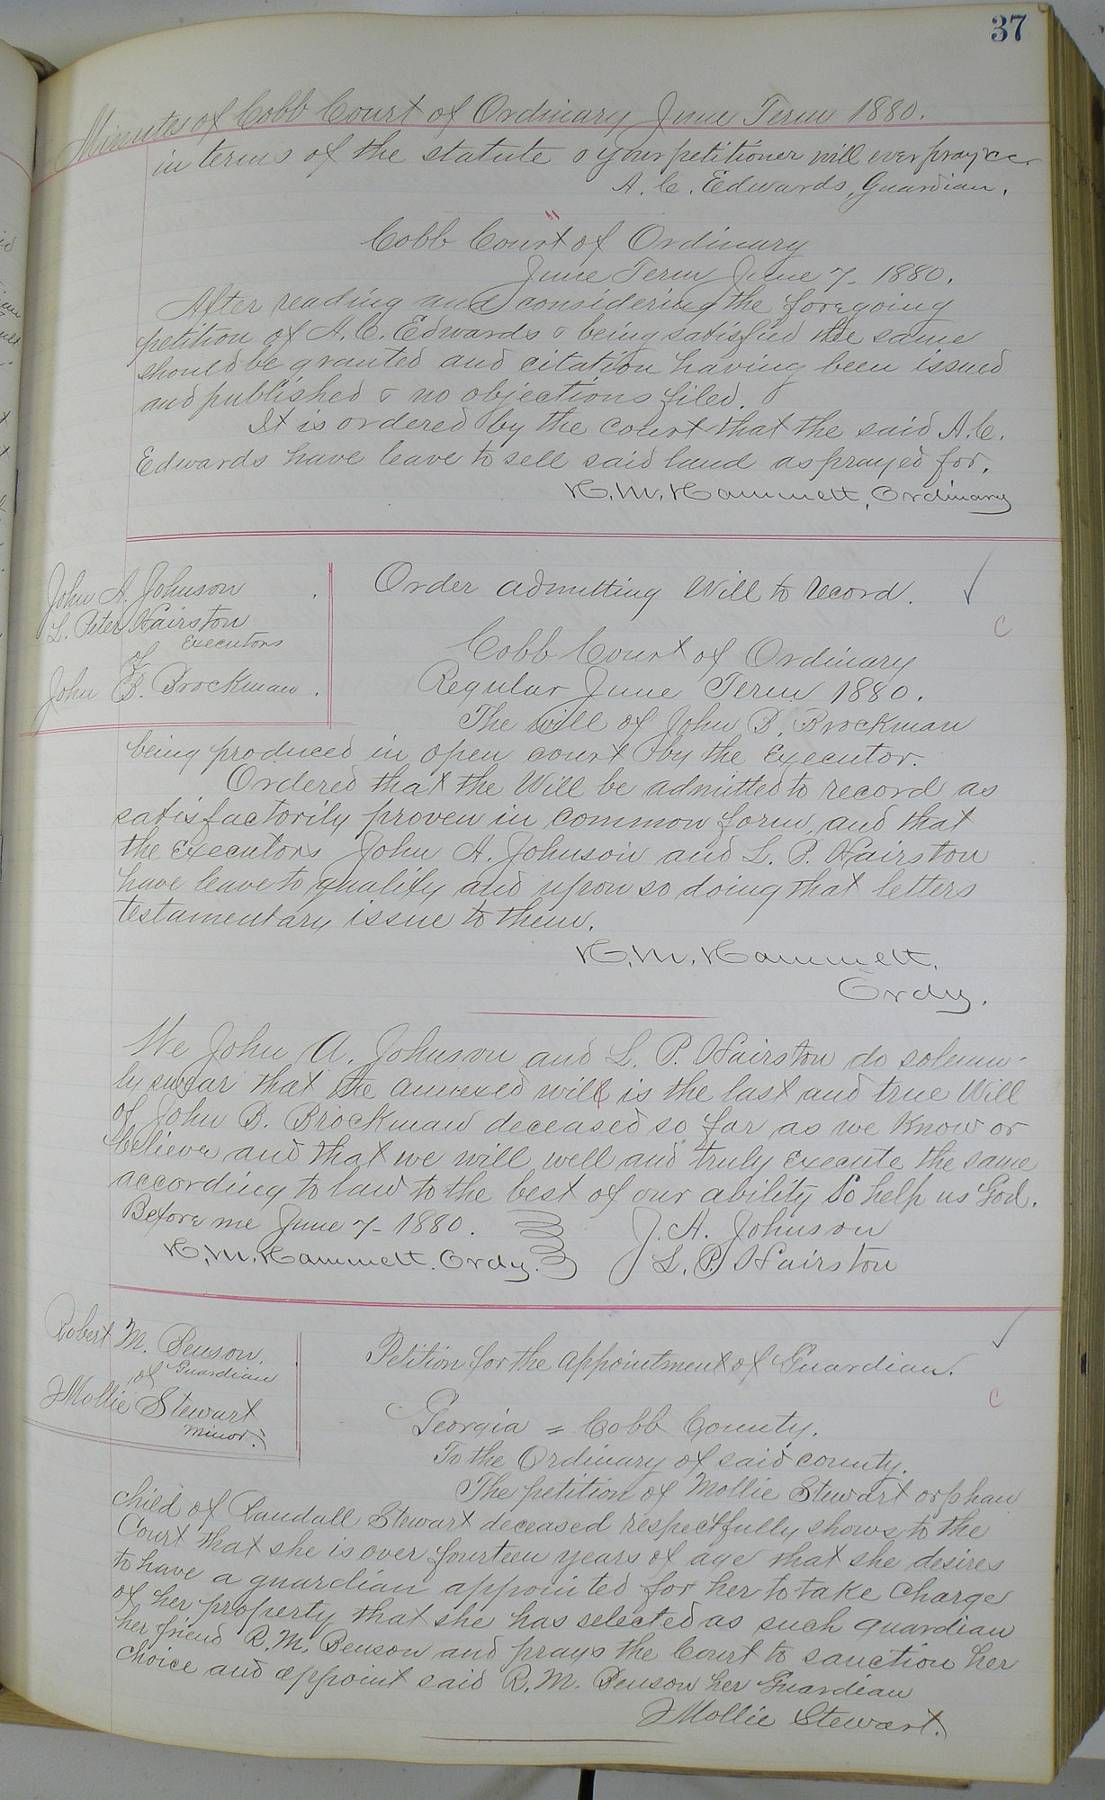 37
Minutes of Cobb Court of Ordinary June Term 1880.
in terms of the statute & your petitioner will ever pray &c
A. C. Edwards, Guardian.
Cobb Court of Ordinary
June Term June 7- 1880.
After reading and considering the foregoing
petition of A. C. Edwards & being satisfied the same
should be granted and citation having been issued
and published & no objections filed.
It is ordered by the court that the said A. C.
Edwards have leave to sell said land as prayed for.
H. M. Hammett, Ordinary
John A. Johnson
L. Peter Hairston
Executors
of
John B. Brockman.
Order admitting Will to record.
C
Cobb Court of Ordinary
Regular June Term 1880.
The will of John B. Brockman
being produced in open court by the Executor.
Ordered that the Will be admitted to record as
satisfactorily proven in common form, and that
the Executors John A. Johnson and L. P. Hairston
have leave to qualify and upon so doing that letters
testamentary issue to them.
H. M. Hammett.
Ordy.
We John A. Johnson and L. P. Hairston do solemn-
ly swear that the annexed will is the last and true Will
of John B. Brockman deceased so far as we know or
believe and that we will well and truly execute the same
according to law to the best of our ability So help us God.
Before me June 7- 1880.
H. M. Hammett. Ordy.
J. A. Johnson
L. P. Hairston
Robert M. Benson.
Guardian
of
Mollie Stewart
Minor.
Petition for the appointment of Guardian.
C
Georgia = Cobb County.
To the Ordinary of said county.
The petition of Mollie Stewart orphan
child of Randall Stewart deceased respectfully shows to the
Court that she is over fourteen years of age that she desires
to have a guardian appointed for her to take charge
of her property that she has selected as such guardian
her friend R. M. Benson and prays the Court to sanction her
choice and appoint said R. M. Benson her Guardian
Mollie Stewart.